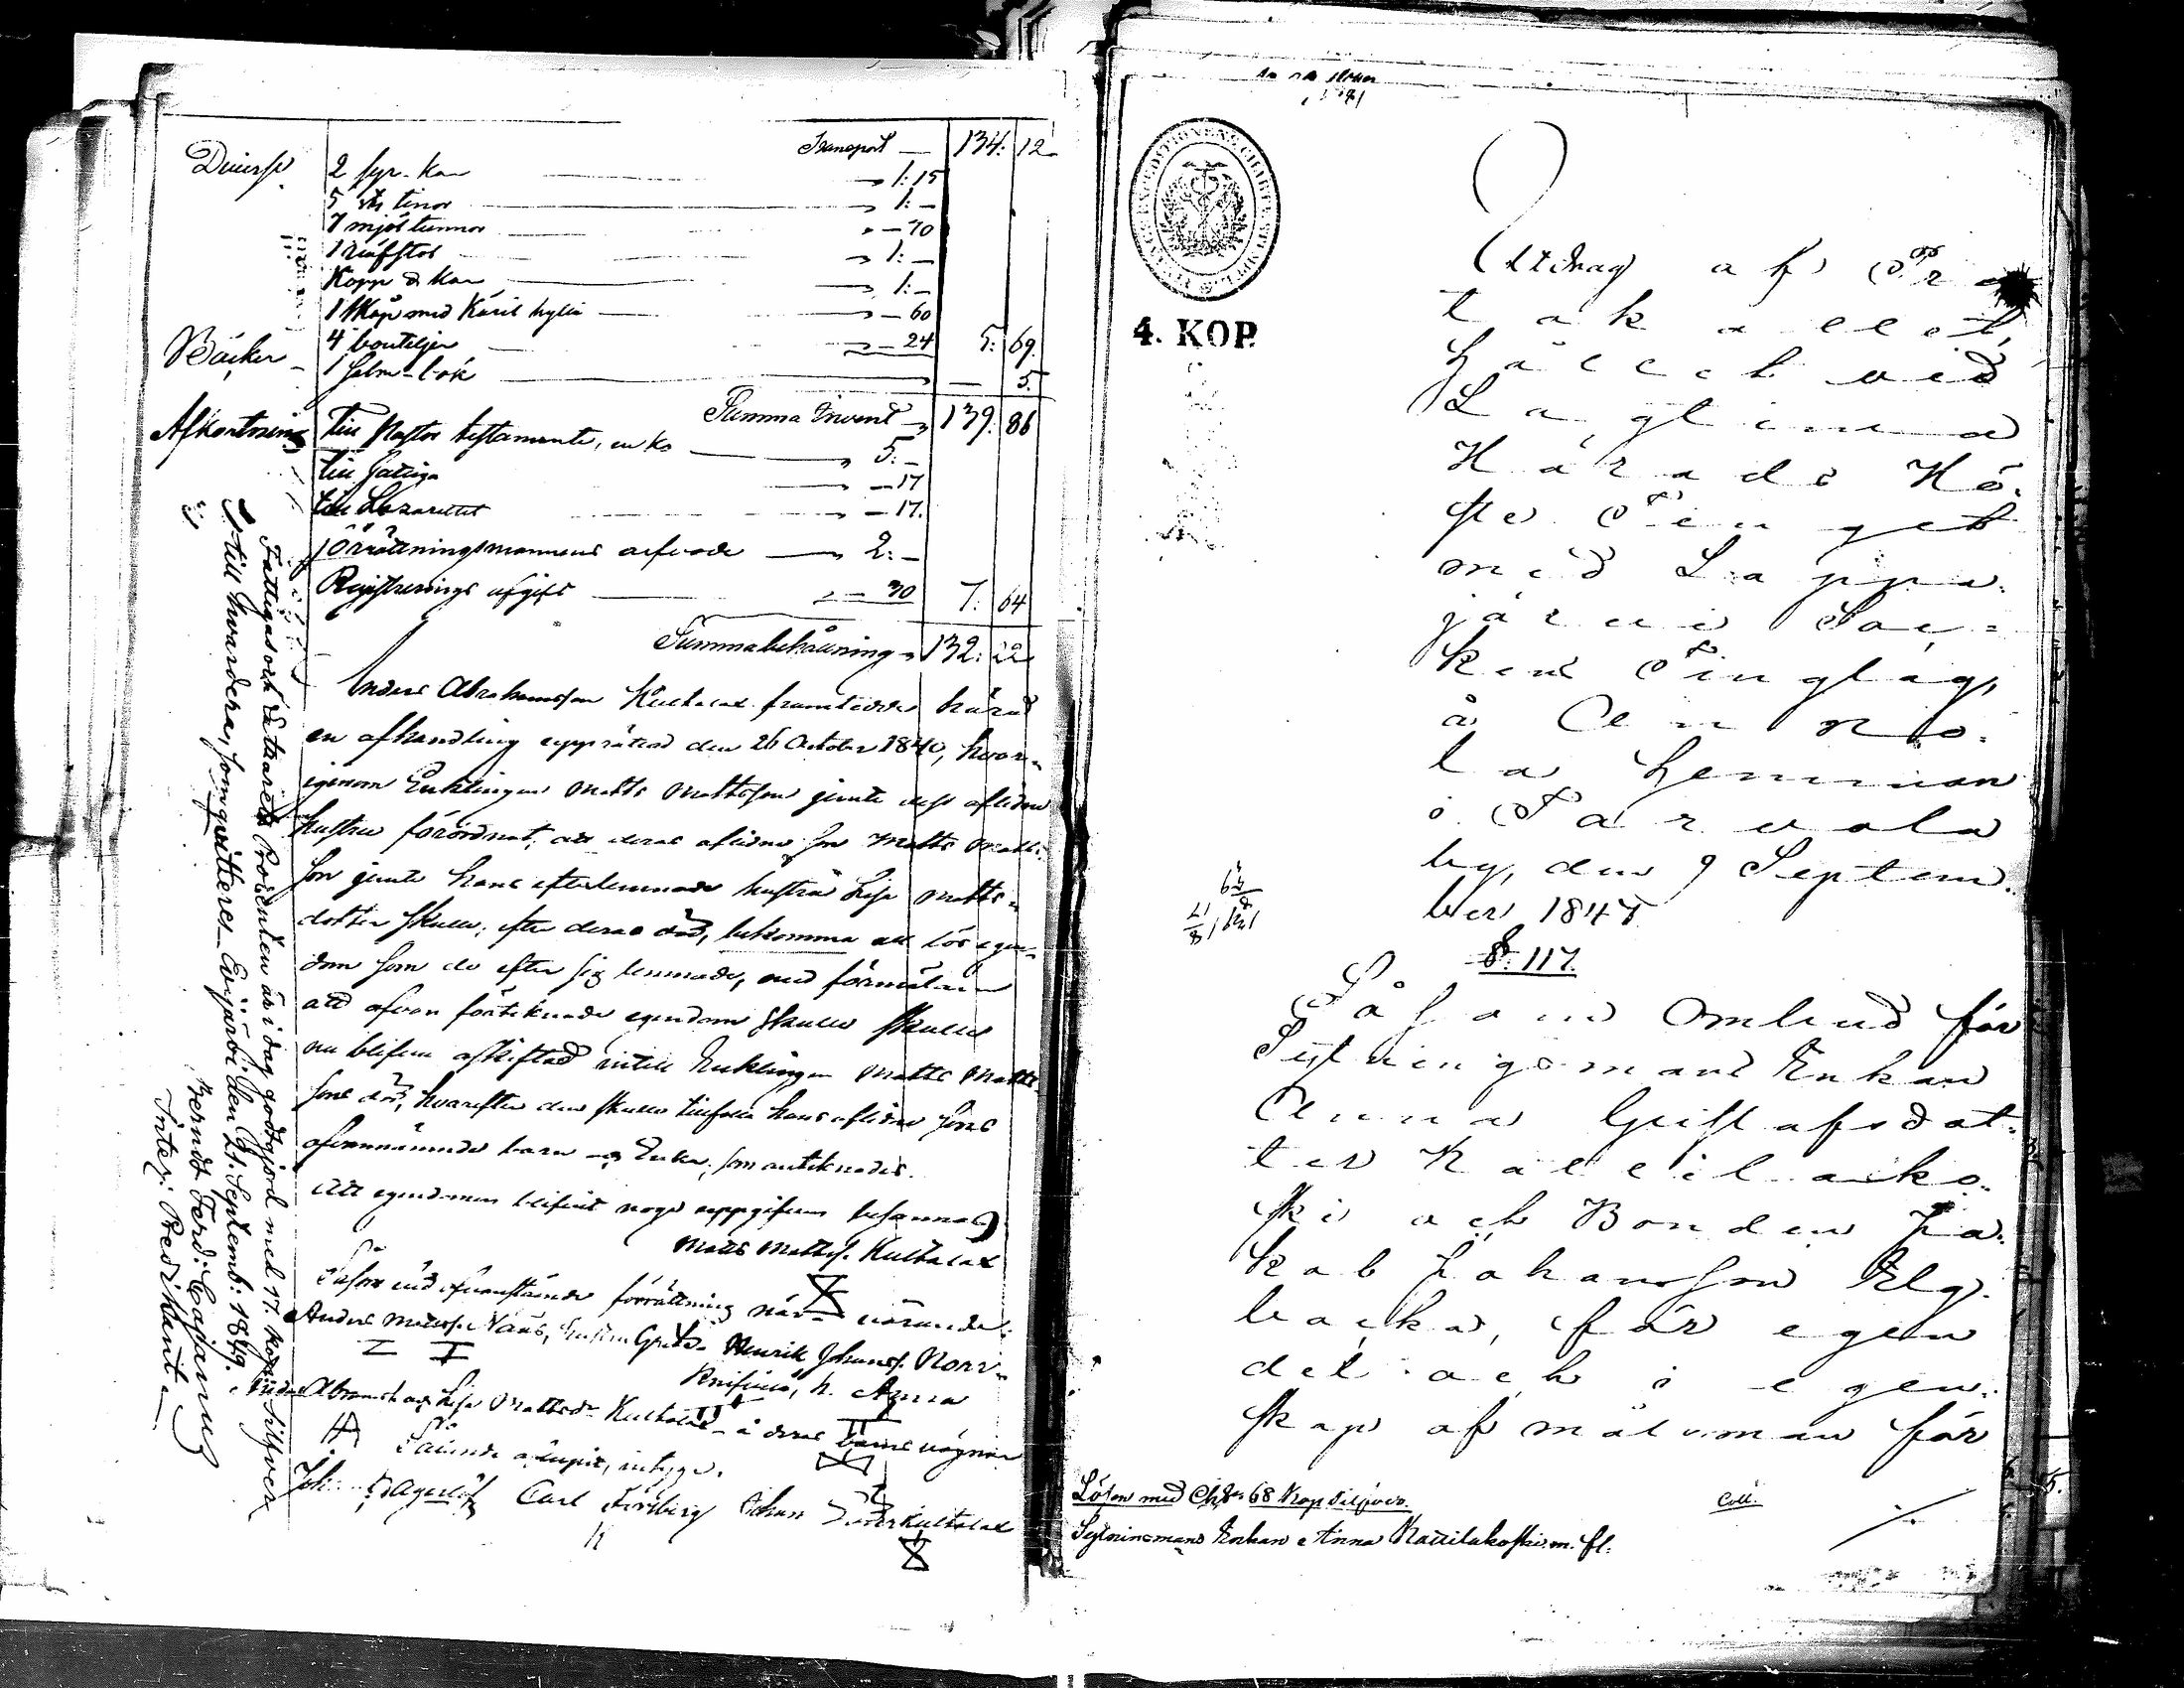 Transport — 134: 12
Diverse 2 fyr-kar — 1: 15
5 st: tinor — 1: —
7 mjöl tunnor — 70
1 — 1: —
Kopp & kar — 1: —
1 Skåp med Käril hylla — 60
4 bouteljer — 24 5: 69.
Böcker — 1 psalm-bok — 5.
Summa Invent 139: 86
Afkortning till Pastor testamente, en ko — 5: —
till fattiga — 17
till Lazarettet — 17.
förrättningsmannens arfvode — 2: —
Registrerings afgift — 30 7: 64
Summa behållning 132: 22
Anders Abrahamsson Kultalax framtedde härvid
en afhandling upprättad den 26 October 1840, hvar-
igenom Enklingen Matts Mattsson jemte dess aflidne
hustru förordnat, att deras aflidne son Matts Matts-
son jemte hans efterlemnade hustru Lisa Matts-
dotter skulle, efter deras död, bekomma all lös egen-
dom som de efter sig lemnade, med förmälan
att ofvan förteknade egendom skulle skulle
nu blifva oskiftad intill Enklingen Matts Matts-
sons död, hvarefter den skulle tillfalla hans aflidne sons
ofvannämnde barn och Enka, som anteknades.
Att egendomen blifvit noga uppgifven befannas)
Matts Matts. Kultalax
Såsom vid ofvanstående förrättning när- värande:
Anders Mattss. Näns, hustru Greta. Henrik Johanss. Norr-
Knifsilä, h. Anna
Anders Abramsson och Lisa Mattsdr Kultalax — å deras barns vägnar
Sålunda afslutit, intyga.
Joh: Lagerlöf Carl Forsberg Johan Söderkultalax
Fattigas och Lazaretts Procenten är i dag godtgjord med 17. kop: silfver
till hvardera, som qvitteras. Evijärvi den 21. Septemb: 1849.
Berndt Ferd: Cajanus
Inter: Predikant
4. KOP.
Utdrag af Pro-
tokollet,
hållet vid
Lagtima
Härads Hö-
ste Tinget
med Lappa-
järvi Soc-
kens Tinglag,
å Anno-
la hemman
i Tarvola
by, den 9 Septem-
ber 1847
§. 117.
Såsom Ombud för
Sexmans Enkan
Anna Gustafsdot-
ter Kattilako-
ski och Bonden Ja-
kob Johansson Elg-
backa, för egen
del och i egen-
skap af målsman för
Lösen med Ch: S: 68 Kop Silfver.
Coll.
Enkan Anna Kattilakoski m. fl.